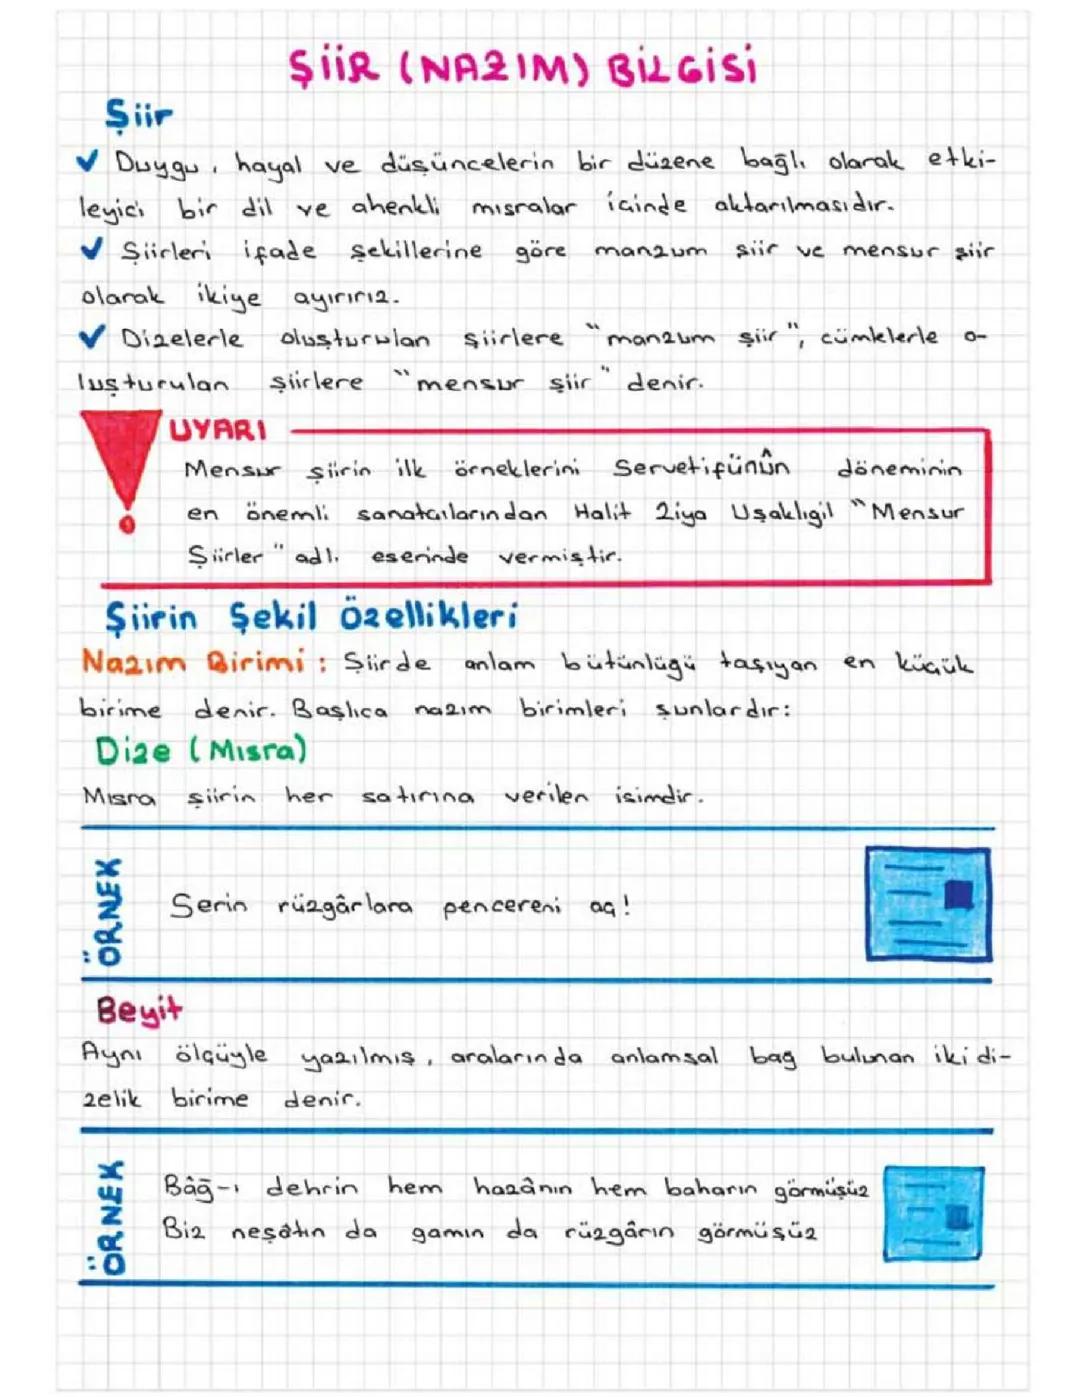 ŞİİR (NAZIM) BİLGİSİ
Şiir
✓ Duygu, hayal ve düşüncelerin bir düzene bağlı olarak etki-
leyici bir dil ve ahenkli mısralar içinde aktarılmasıdır.
✓ Şiirleri ifade şekillerine göre manzum şiir ve mensur şiir
olarak ikiye ayırırız.
✓ Dizelerle oluşturulan şiirlere "manzum şiir", cümlelerle o-
luşturulan şiirlere "mensur şiir" denir.
UYARI
Mensur şiirin ilk örneklerini Servetifünûn döneminin
en önemli sanatçılarından Halit Ziya Uşaklıgil "Mensur
Şiirler" adlı eserinde vermiştir.
Şiirin Şekil Özellikleri
Nazım Birimi: Şiirde anlam bütünlüğü taşıyan en küçük
birime denir. Başlıca nazım birimleri şunlardır:
Dize (Mısra)
Mısra şiirin her satırına verilen isimdir.
ÖRNEK
Serin rüzgârlara pencereni aç!
Beyit
Aynı ölçüyle yazılmış, aralarında anlamsal bağ bulunan iki di-
zelik birime denir.
ÖRNEK
Bâğ-ı dehrin hem hazânın hem baharın görmüşüz
Biz neşâtın da gamın da rüzgârın görmüşüz